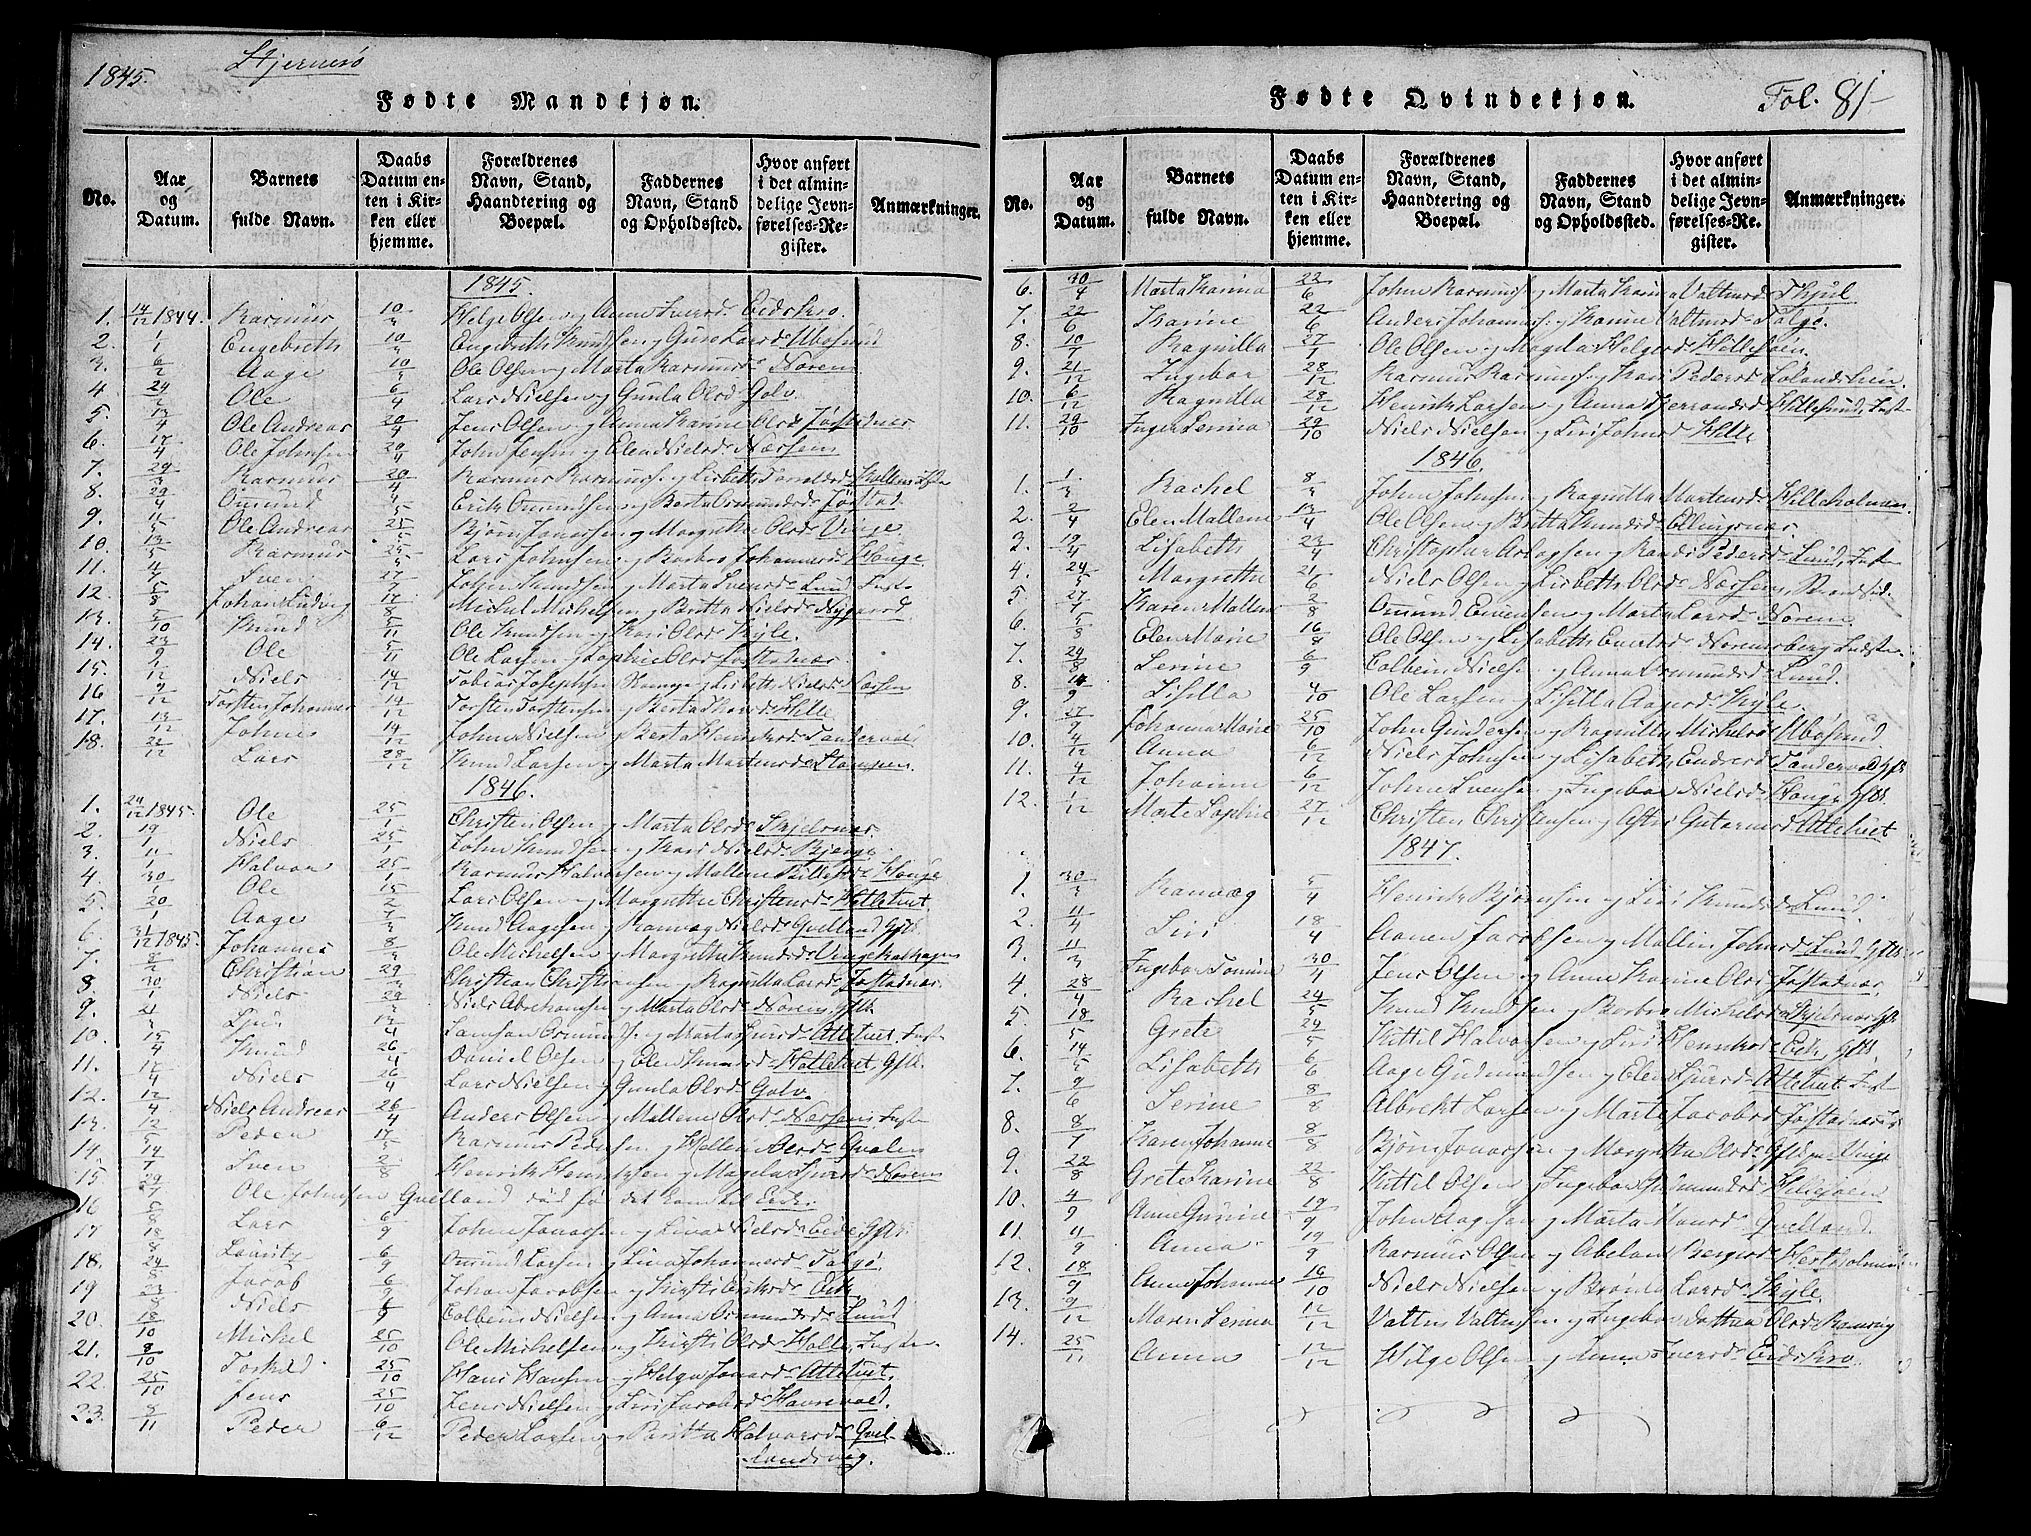 1845.
Stjernerö
Fødte Mandkjøn.
No.
Aar og Datum.
Barnets fulde Navn.
Daabs Datum enten i Kirken eller hjemme.
Forældrenes Navn, Stand, Haandtering og Boepæl.
Faddernes Navn, Stand og Opholdssted.
Hvor anført i det almindelige Jevnførelses-Register.
Anmærkninger.
1845.
1. 14/12 1844. Rasmus 10/3 Helge Olsen og Anna Iversd Eidskro
2. 1/1 Engebreth 10/3 Engebreth Knudsen og Guro Larsd Ubøsund
3. 6/2 Aage 10/3 Ole Olsen og Marta Rasmusd Noreim
4. 24/2 Ole 6/4 Lars Nielsen og Gunla Olsd Golv.
5. 13/4 Ole Andreas 20/4 Jens Olsen og Anna Karine Olsd Jøstadnæs
6. 17/4 Ole Johnsen 20/4 John Jensen og Elen Nielsd Næssem
7. 29/3 Rasmus 20/4 Rasmus Rasmuss. og Lisbeth
8. 29/4 Omund Erik Omundsen og Berta Osmundsd Jøstad.
9. 11/5 Ole Andreas 25/5 Bjørn Jonassen og Margrethe Olsd Vinge
10. 13/5 Rasmus 25/5 Lars Johnsen og Barbro Johannesd Hauge
11. Sven 27/7 John Knudsen og Marta Svensd Lund
12. 5/8 Johan Ludvig 17/8 Michel Michelsen og Britta Nielsd Nygaard
13. 5/10 Knud 5/11 Ole Knudsen og Kari Olsd Kyle.
14. 23/9 Ole 5/11 Ole Larsen og Sophie Olsd Jøstadnæs.
15. 1/12 Niels 14/12 Tobias Josephsen og Lisbeth Nielsd Næssem
16. 9/12 Torsten Johannes 14/12 Torsten Torstensen og Berta
17. 13/12 Johnes 14/12 John Nielsen og Berta Henriksd Tendervold
18. 22/12 Lars 28/12 Knud Larsen og Marta Martensd Stompen.
1846.
1. 24/12 1845. Ole 25/1 Christen Olsen og Marta Olsd Skjelsnæs.
2. 19/1 Niels 25/1 John Knudsen og Kari Nielsd Bjerge
3. 11/1 Halvor 25/1 Rasmus Halvorsen og Mallene Hauge
4. 30/1 Ole 15/2 Lars Olsen og Margrethe Christensd Hetletvet.
5. 20/1 Aage 7/3 Knud Aagesen og Ranvaag Nielsd Qvelland Gfts.
6. 31/12 1845. Johannes 8/3 Ole Michelsen og Margrethe Knudsd Vinge
7. 8/2 Christian 29/3 Christian Christiansen og Ragnilla Larsd Jøstadnæs
8. 30/1 Niels 29/3 Niels Abrahamsen og Marta Olsd Noreim Gfts.
9. 21/3 Sjur 13/4 og Marta Sjursd Attetvet,
10. 15/4 Knud 26/4 Daniel Olsen og Elen Knudsd Hatletvet, Gfts.
11. 17/4 Niels 26/4 Lars Nielsen og Gunla Olsd Golv.
12. 12/4 Niels Andreas 26/4 Anders Olsen og Mallene Olsd Næssem
13. 12/5 Peder 17/5 Rasmus Pedersen og Mallen Olsd Qvalen
14. 14/7 Sven 2/8 Henrik Henriksen og Magela Sjursd Norem
15. 29/7 Ole Johnsen Qvelland død før det kom til Kirke.
16. 5/8 Lars 6/9 John Jonassen og Lina Nielsd Eide, Gfts.
17. 18/8 Lauritz 6/9 Omund Larsen og Lina Johannesd Talgø.
18. 24/8 Jacob 6/9 Johan Jacobsen og Kirsti Eriksd Eik.
19. 23/8 Niels 6/9 Colbein Nielsen og Anna Osmundsd Lund
20. 18/10 Michel 25/10 Ole Michelsen og Kirsti Olsd Hatle,
21. 8/10 Torkild 25/10 Hans Hansen og Helga Jonasd Attetvet,
22. 25/10 Jens 25/10 Jens Nielsen og Siri Jacobsd Havnevold.
23. 8/11 Peder 6/12 Peder Larsen og Britta Halvorsd Qvel-
landsvaag.
Fødte Qvindekjøn.
Fol. 81
No.
Aar og Datum.
Barnets fulde Navn.
Daabs Datum enten i Kirken eller hjemme.
Forældrenes Navn, Stand, Haandtering og Boepæl.
Faddernes Navn, Stand og Opholdssted.
Hvor anført i det almindelige Jevnførelses-Register.
Anmærkninger.
6. 30/4 Marta Karina 22/6 John Rasmuss. og Marta Karina Valtinsd Skjul
7. 22/6 Karine 22/6 Anders Johannes. og Karine Valtinsd Talgø.
8. 10/7 Ragnilla 27/7 Ole Olsen og Magela Helgesd Hillesøen.
9. 21/12 Ingebor 28/12 Rasmus Rasmuss. og Kari Pedersd
10. 6/12 Ragnilla 28/12 Henrik Larsen og Anna Hillesund,
11. 29/10 Inger Serina 29/10 Niels Nielsen og Siri Johnsd Hille
1846.
1. 1/3 Rachel 8/3 John Johnsen og Ragnilla Martensd Hilleholmen.
2. 2/4 Elen Mallene 13/4 Ole Olsen og Britta Knudsd Ellingsnæs.
3. 19/4 Lisabeth 23/4 Christopher Aslagsen og Randi Pedersd Lund,
4. 24/5 Margrethe 21/6 Niels Olsen og Lisbeth Olsd Næssem,
5. 27/7 Karen Mallene 2/8 Omund Einersen og Marta Larsd Norem
6. 5/8 Elen Marie 16/8 Ole Olsen og Lisabeth Noremsberg
7. 24/8 Serine 6/9 Colbein Nielsen og Anna Osmundsd Lund.
8. 14/9 Lisilla 4/10 Ole Larsen og Lisilla Aagesd Kyle.
9. 27/7 Johanna Marie 25/10 John Gundersen og Ragnilla Michelsd Ubøsund
10. 4/12 Anna 6/12 Niels Johnsen og Lisabeth Endresd Tendervold Gfts
11. 4/12 Johanne 6/12 John Svensen og Ingebor Nielsd Hauge Gfts.
12. 1/12 Marte Sophie 27/12 Christen Christensen og Astri Gutormsd Attetvet
1847.
1. 30/3 Ranvaag 5/4 Henrik Bjørnsen og Siri Knudsd Lund.
2. 11/4 Siri 18/4 Aanen Jacobsen og Mallin Johnsd Lund Gfts.
3. 11/3 Ingebor Tomine 30/4 Jens Olsen og Anne Karine Olsd Jøstadnæs.
4. 28/4 Rachel 24/5 Knud Knudsen og Barbro Michelsd Skjelsnæs Gfts
5. 18/5 Grete 24/5 Kittil Halvorsen og Siri Henriksd Eik, Gfts.
6. 14/5 Lisabeth 6/6 Aage Gudmundsen og Elen Sjursd Attetvet
7. 9/6 Serine 8/8 Albrekt Larsen og Marta Jacobsd Jøstadnæs
8. 8/7 Karen Johanne 8/8 Bjørn Jonassen og Margretha Olsd Gfts. paa Vinge
9. 22/8 Grete Karine 22/8 Kittil Olsen og Ingebor Hillesøen
10. 4/9 Anne Gurine 19/9 John Aagesen og Marta Monsd Qvelland.
11. 11/9 Anna 19/9 Rasmus Olsen og Abelone Børgesd
12. 18/9 Anne Johanne 16/10 Niels Nielsen og Brønla Larsd Kyle,
13. 9/12 Maren Serina 12/12 Valtin Valtinsen og Ingebor Olsd
14. 25/11 Anna 12/12 Hilge Olsen og Anna Iversd Eidskro